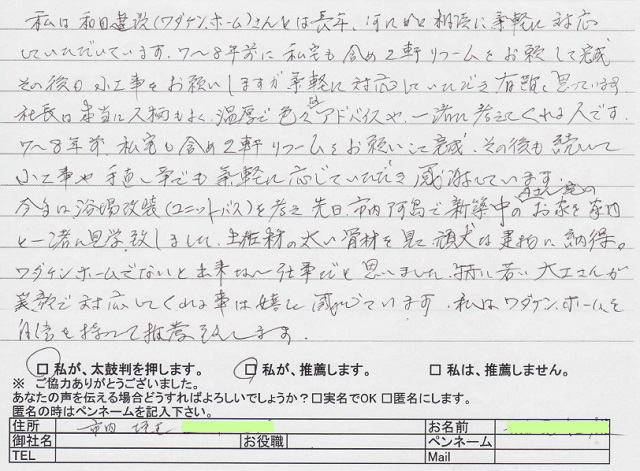 私は和田建設(ワダケンホーム)さんとは長年、何かと相談に気軽に対応
していただいています。7〜8年前に私宅も含め2軒リフォームをお願して完成
その後も小工事をお願いしますが気軽に対応していただき有難く思っています。
社長は本当に人柄もよく、温厚で色々アドバイスや、一緒に考えてくれる人です。
7〜8年前、私宅も含め2軒リフォームをお願いして完成、その後も続いて
小工事や手直し等でも気軽に応じていただき感謝しています。
今年は浴場改装(ユニットバス)を考え先日、市内 で新築中の お家を家内
と一緒に見学致しました。土台や柱の太い骨材を見て頑丈な建物に納得。
ワダケンホームでないと出来ない仕事だと思いました。特に若い大工さんが
笑顔で対応してくれる事は嬉しく感じています。私はワダケンホームを
自信を持って推薦致します。
□ 私が、太鼓判を押します。 □ 私が、推薦します。 □ 私は、推薦しません。
※ ご協力ありがとうございました。
あなたの声を伝える場合どうすればよろしいでしょうか?□実名でOK □匿名にします。
匿名の時はペンネームを記入下さい。
住所 市内 お名前
御社名 お役職 ペンネーム
TEL Mail